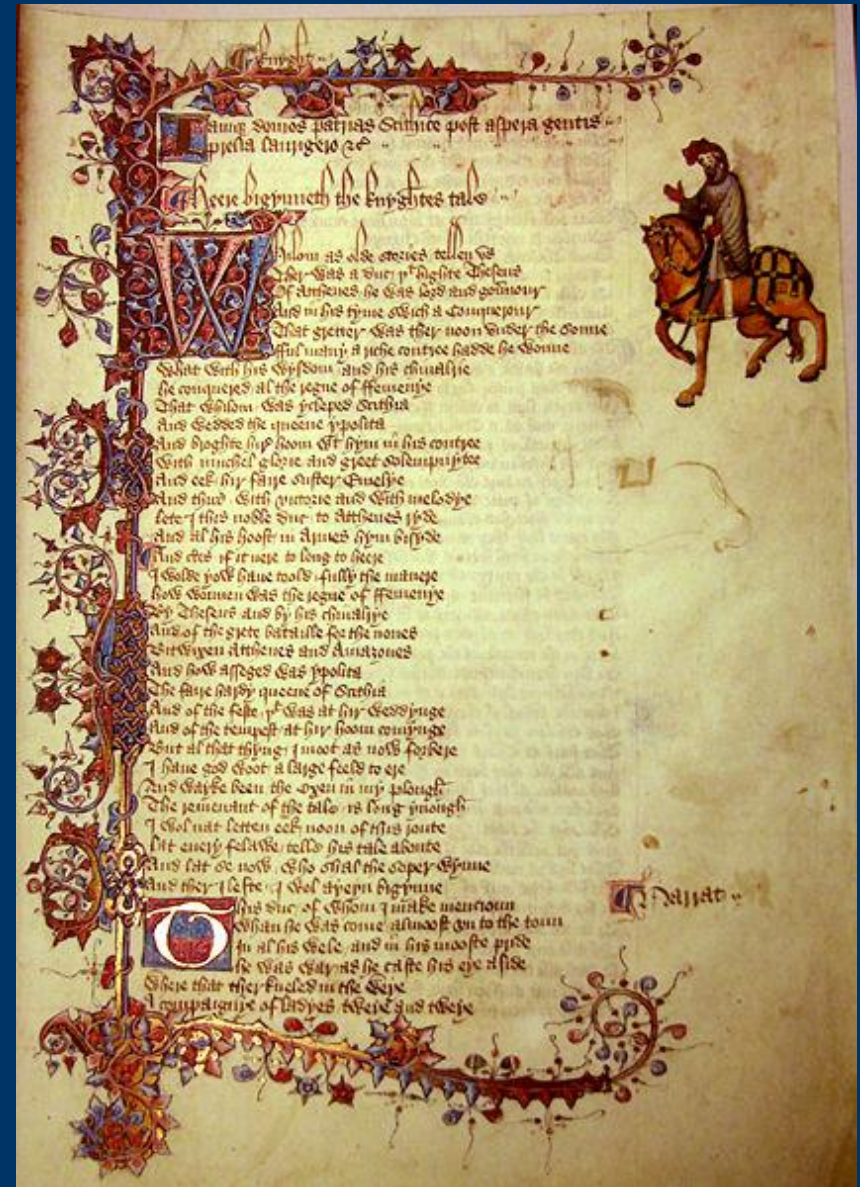 ¶ Knyght
Iamq; domos patrias Scithice post aspera gentis
prelia laurigero &c
¶ Heere bigynneth the knyghtes tale
Whilom as olde stories tellen vs
Ther was a duc þt highte Theseus
Of Atthenes he was lord and gouernour
And in his tyme swich a Conquerour
That gretter was ther noon vnder the sonne
fful many a riche contree hadde he wonne
What with his wysdom and his chiualrie
he conquered al the regne of ffemenye
That whilom was ycleped Scithia
And wedded the queene ypolita
And broghte hir hoom wt hym in his contree
With muchel glorie and greet solempnytee
And eek hir faire suster Emelye
And thus with victorie and with melodye
lete I this noble duc to Atthenes ryde
And al his hoost in Armes hym bisyde
And certes if it nere to long to heere
I wolde yow haue toold fully the manere
how wonnen was the regne of ffemenye
By Theseus and by his chiualrye
And of the grete bataille for the nones
Bitwixen Atthenes and Amazones
And how asseged was ypolita
The faire hardy queene of Scithia
And of the feste þt was at hir weddynge
And of the tempest at hir hoom comynge
But al that thyng I moot as now forbere
I haue god woot a large feeld to ere
And wayke been the Oxen in my plough
The remenant of the tale is long ynough
I wol nat letten eek noon of this route
lat euery felawe telle his tale aboute
And lat se now who shal the soper wynne
And ther I lefte I wol ayeyn bigynne
This duc of whom I make mencioun
Whan he was come almoost vn to the toun
In al his wele and in his mooste pride
he was war as he caste his eye aside
Where that ther kneled in the weye
A compaignye of ladyes tweye and tweye
¶ Narrat